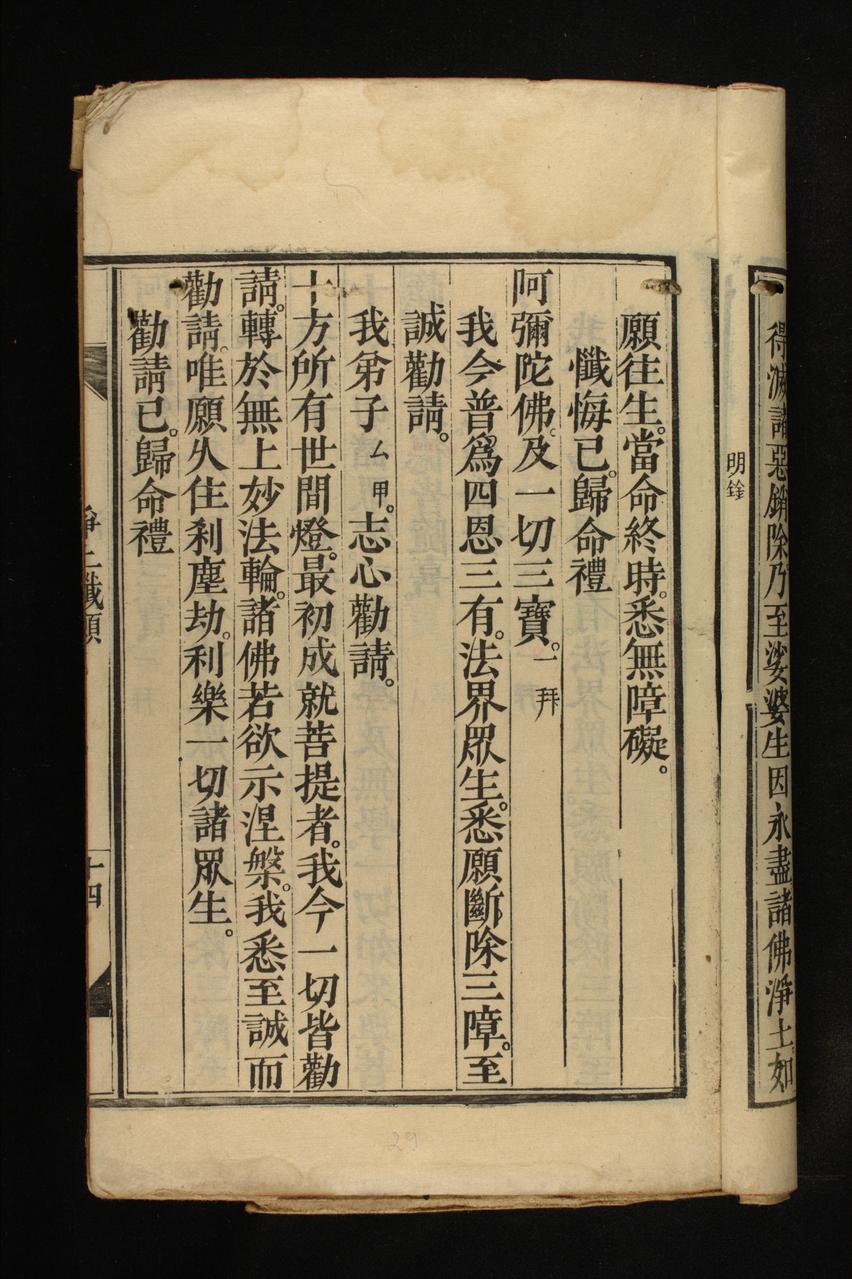 得滅諸惡銷除乃至娑婆生因永盡諸佛淨土如
明鋒
願往生。當命終時。悉無障礙。
懺悔已。歸命禮
阿彌陀佛。及一切三寶。一拜
我今普爲四恩三有。法界眾生。悉願斷除三障。至
誠勸請。
我弟子ム甲。志心勸請。
十方所有世間燈。最初成就菩提者。我今一切皆勸
請。轉於無上妙法輪。諸佛若欲示涅槃。我悉至誠而
勸請。唯願久住刹塵劫。利樂一切諸眾生。
勸請已。歸命禮
淨土懺願
十四
29